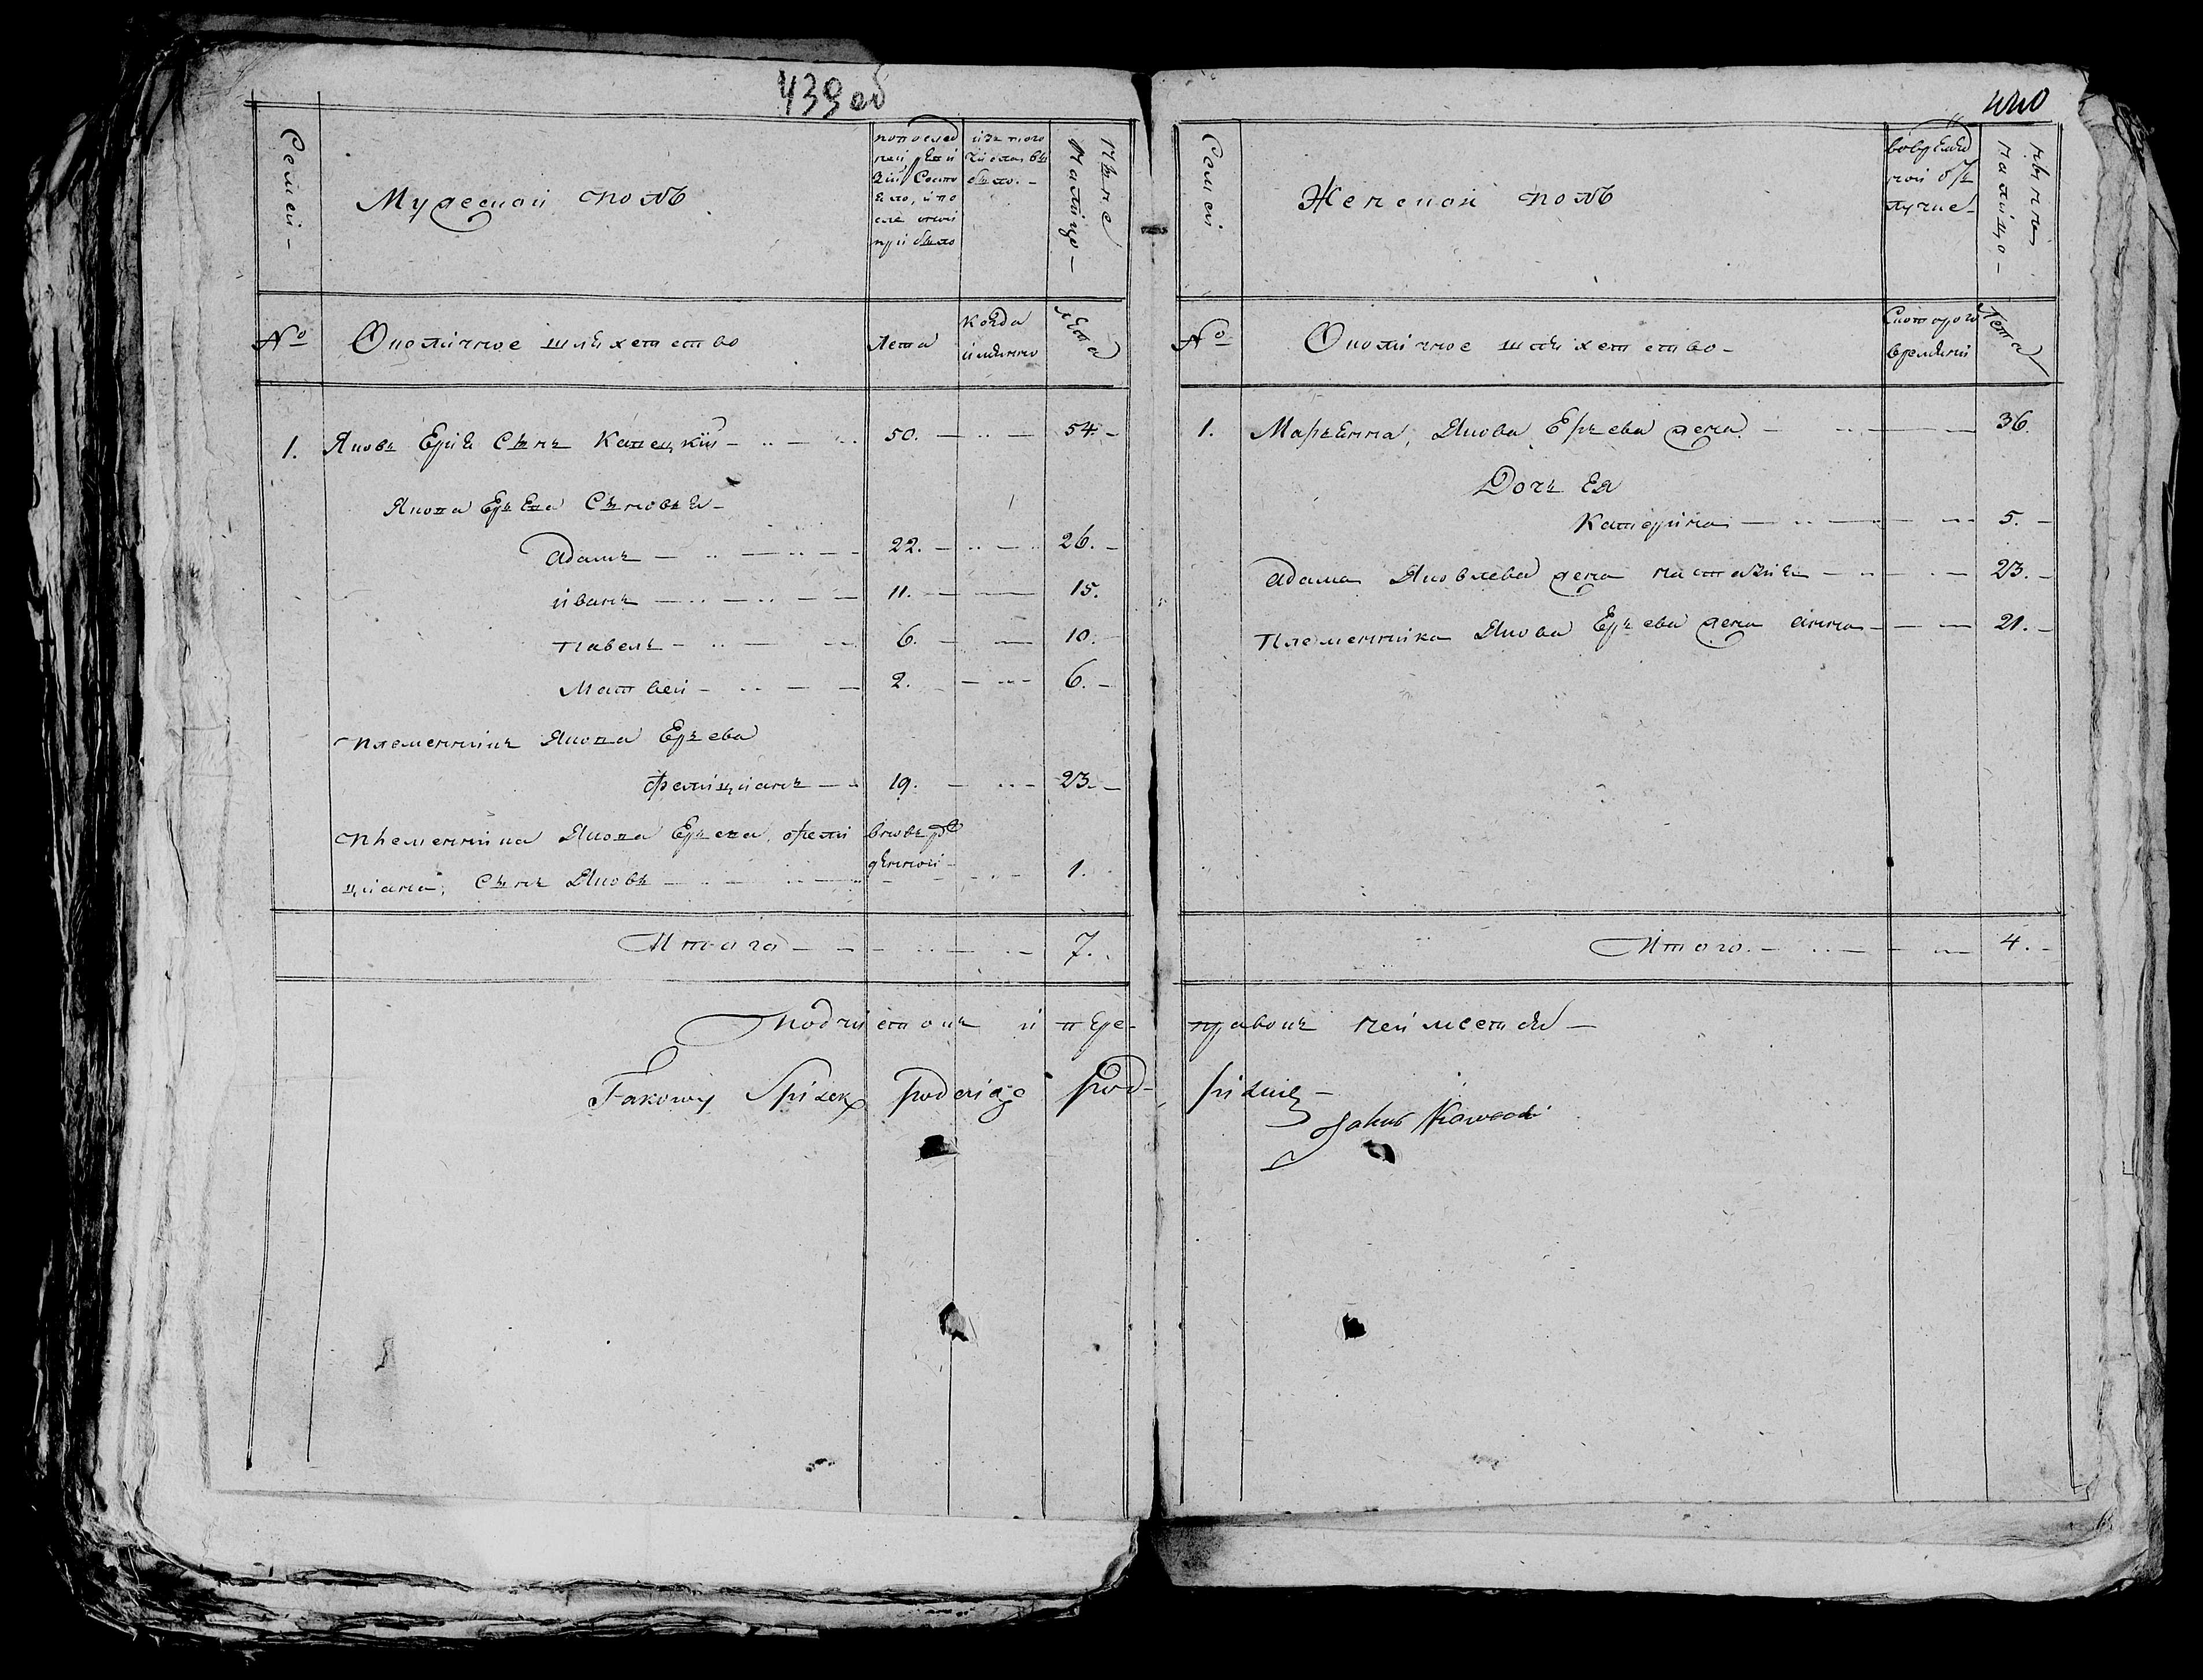 439 об
Семеи
Мужеской полъ
по послед
ней реви
зіи Состо
яло, и по
сле оной
прибыло
изъ того
числа вы
было.
Ныне
налицо
№
Околичное шляхетство
Лета
Когда
имянно
Лета
1. Яковъ Ерія Сынъ Капецкіи 50. 54.
Якова Ерьева Сыновья
Адамъ 22. 26.
Иванъ 11. 15.
Павелъ 6. 10.
Матвеи 2. 6.
Племенникъ Якова Ерьева
Фелиціанъ 19. 23.
Племенника Якова Ерьева, Фели
ціана, Сынъ Яковъ
вновь рож
денной
1.
Итого 7.
440
Семеи
Женской полъ
во време
ной отъ
лучке
ныне
налицо
№
Околичное шляхетство
Скотораго
времяни
Лета
1. Марьянна, Якова Ерьева жена 36.
Дочь Ея
Катерина 5.
Адама Яковлева жена Настазия 23.
Племенника Якова Ерьева жена Анна 21.
Итого 4.
Подчистокъ и пере- правокъ неимеетъ
Takowy Spisek podaiąc pod- pisuię
Jakub